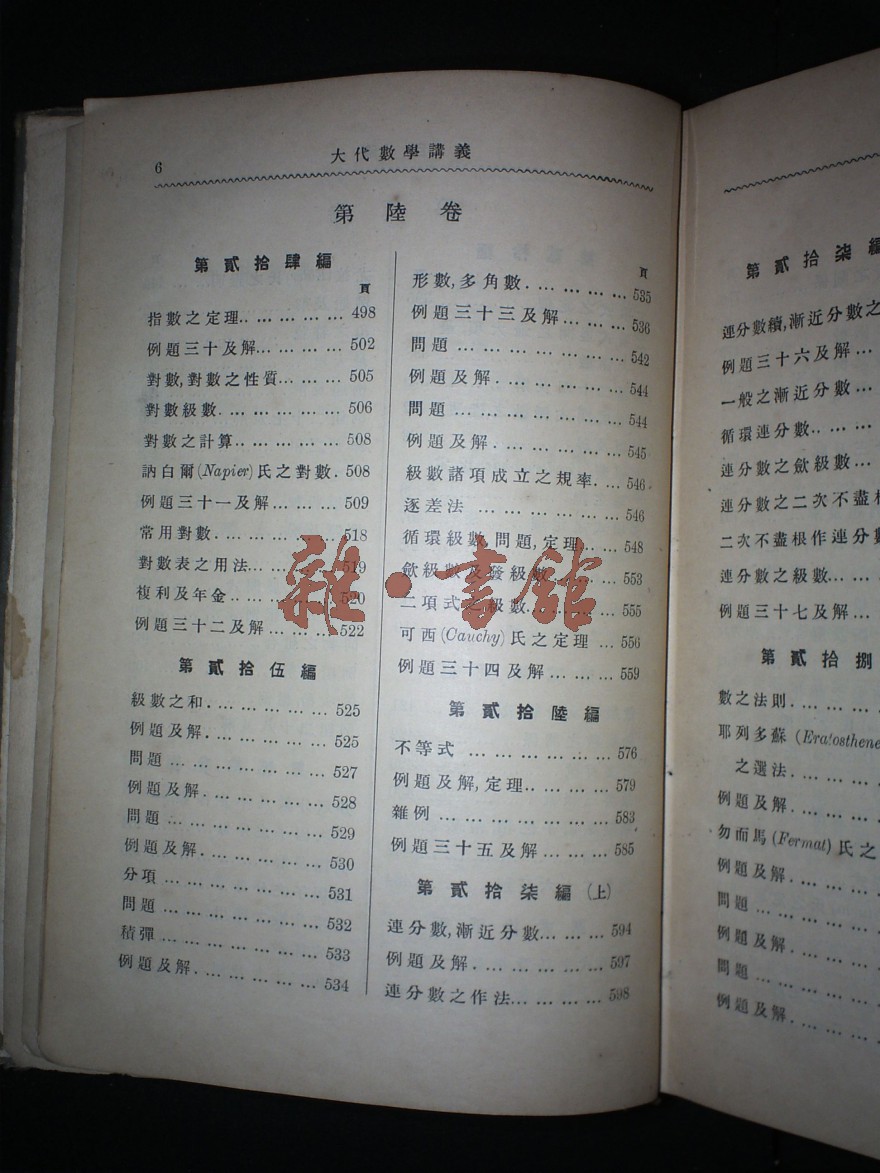 6
大代數學講義
第陸卷
第貳拾肆編
頁
指數之定理.. … … … … 498
例題三十及解… … … … 502
對數,對數之性質… … … 505
對數級數. … … … … … 506
對數之計算.. … … … … 508
訥白爾(Napier)氏之對數. 508
例題三十一及解… … … 509
常用對數. … … … … … 518
對數表之用法… … … … 519
複利及年金.. … … … … 520
例題三十二及解… … … 522
第貳拾伍編
級數之和. … … … … … 525
例題及解. … … … … … 525
問題 … … … … … … … 527
例題及解. … … … … … 528
問題 … … … … … … … 529
例題及解. … … … … … 530
分項 … … … … … … … 531
問題 … … … … … … … 532
積彈 … … … … … … … 533
例題及解. … … … … … 534
頁
形數,多角數. … … … … 535
例題三十三及解… … … 536
問題 … … … … … … … 542
例題及解. … … … … … 544
問題 … … … … … … … 544
例題及解. … … … … … 545
級數諸項成立之規率. … 546
逐差法 … … … … … … 546
循環級數,問題,定理… … 548
斂級數及發級數… … … 553
二項式之級數… … … … 555
可西(Cauchy)氏之定理 … 556
例題三十四及解… … … 559
第貳拾陸編
不等式 … … … … … … 576
例題及解,定理.. … … … 579
雜例 … … … … … … … 583
例題三十五及解… … … 585
第貳拾柒編(上)
連分數,漸近分數… … … 594
例題及解. … … … … … 597
連分數之作法… … … … 598
雜·書館
第貳拾柒編
連分數續,漸近分數之
例題三十六及解…
一般之漸近分數…
循環連分數.. …
連分數之斂級數…
連分數之二次不盡根
二次不盡根作連分數
連分數之級數… …
例題三十七及解…
第貳拾捌
數之法則. … …
耶列多蘇 (Eratosthene
之選法. … …
例題及解. … …
勿而馬(Fermat)氏之
例題及解. … …
問題 … … …
例題及解. … …
問題 … … …
例題及解. … …